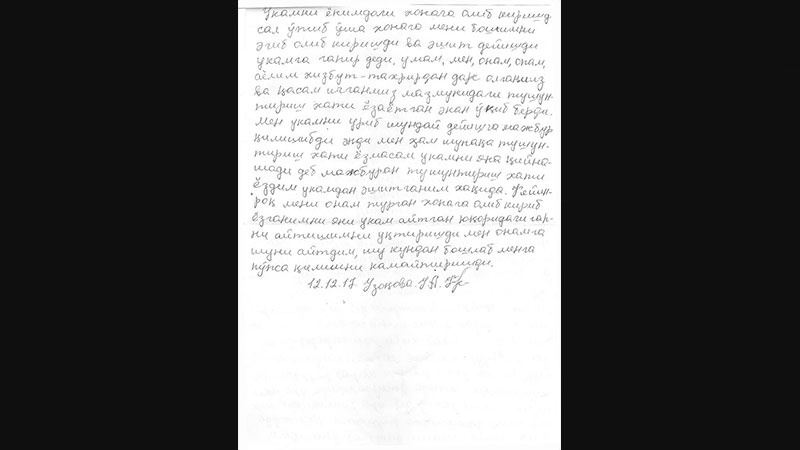 Укамни ёнимдаги хонага олиб киришд
сал ўтиб ўша хонага мени бошимни
эгиб олиб киришди ва эшит дейишди
укамга гапир деди, укам, мен, онам, опам,
аёлим хизбут-тахрирдан дарс олганмиз
ва қасам ичганмиз мазмунидаги тушун-
тириш хати ёзаётган экан ўқиб берди.
Мен укамни уриб шундай дейишга мажбур
қилишибди энди мен ҳам шунақа тушун-
тириш хати ёзмасам укамни яна қийна-
шади деб мажбуран тушунтириш хати
ёздим укамдан эшитганим хақида. Кейин-
роқ мени онам турган хонага олиб кириб
ёзганимни яни укам айтган юқоридаги гап-
ни айтишимни уқтиришди мен онамга
шуни айтдим, шу кундан бошлаб менга
пўписа қилишни камайтиришди.
12.12.17 Узоқова